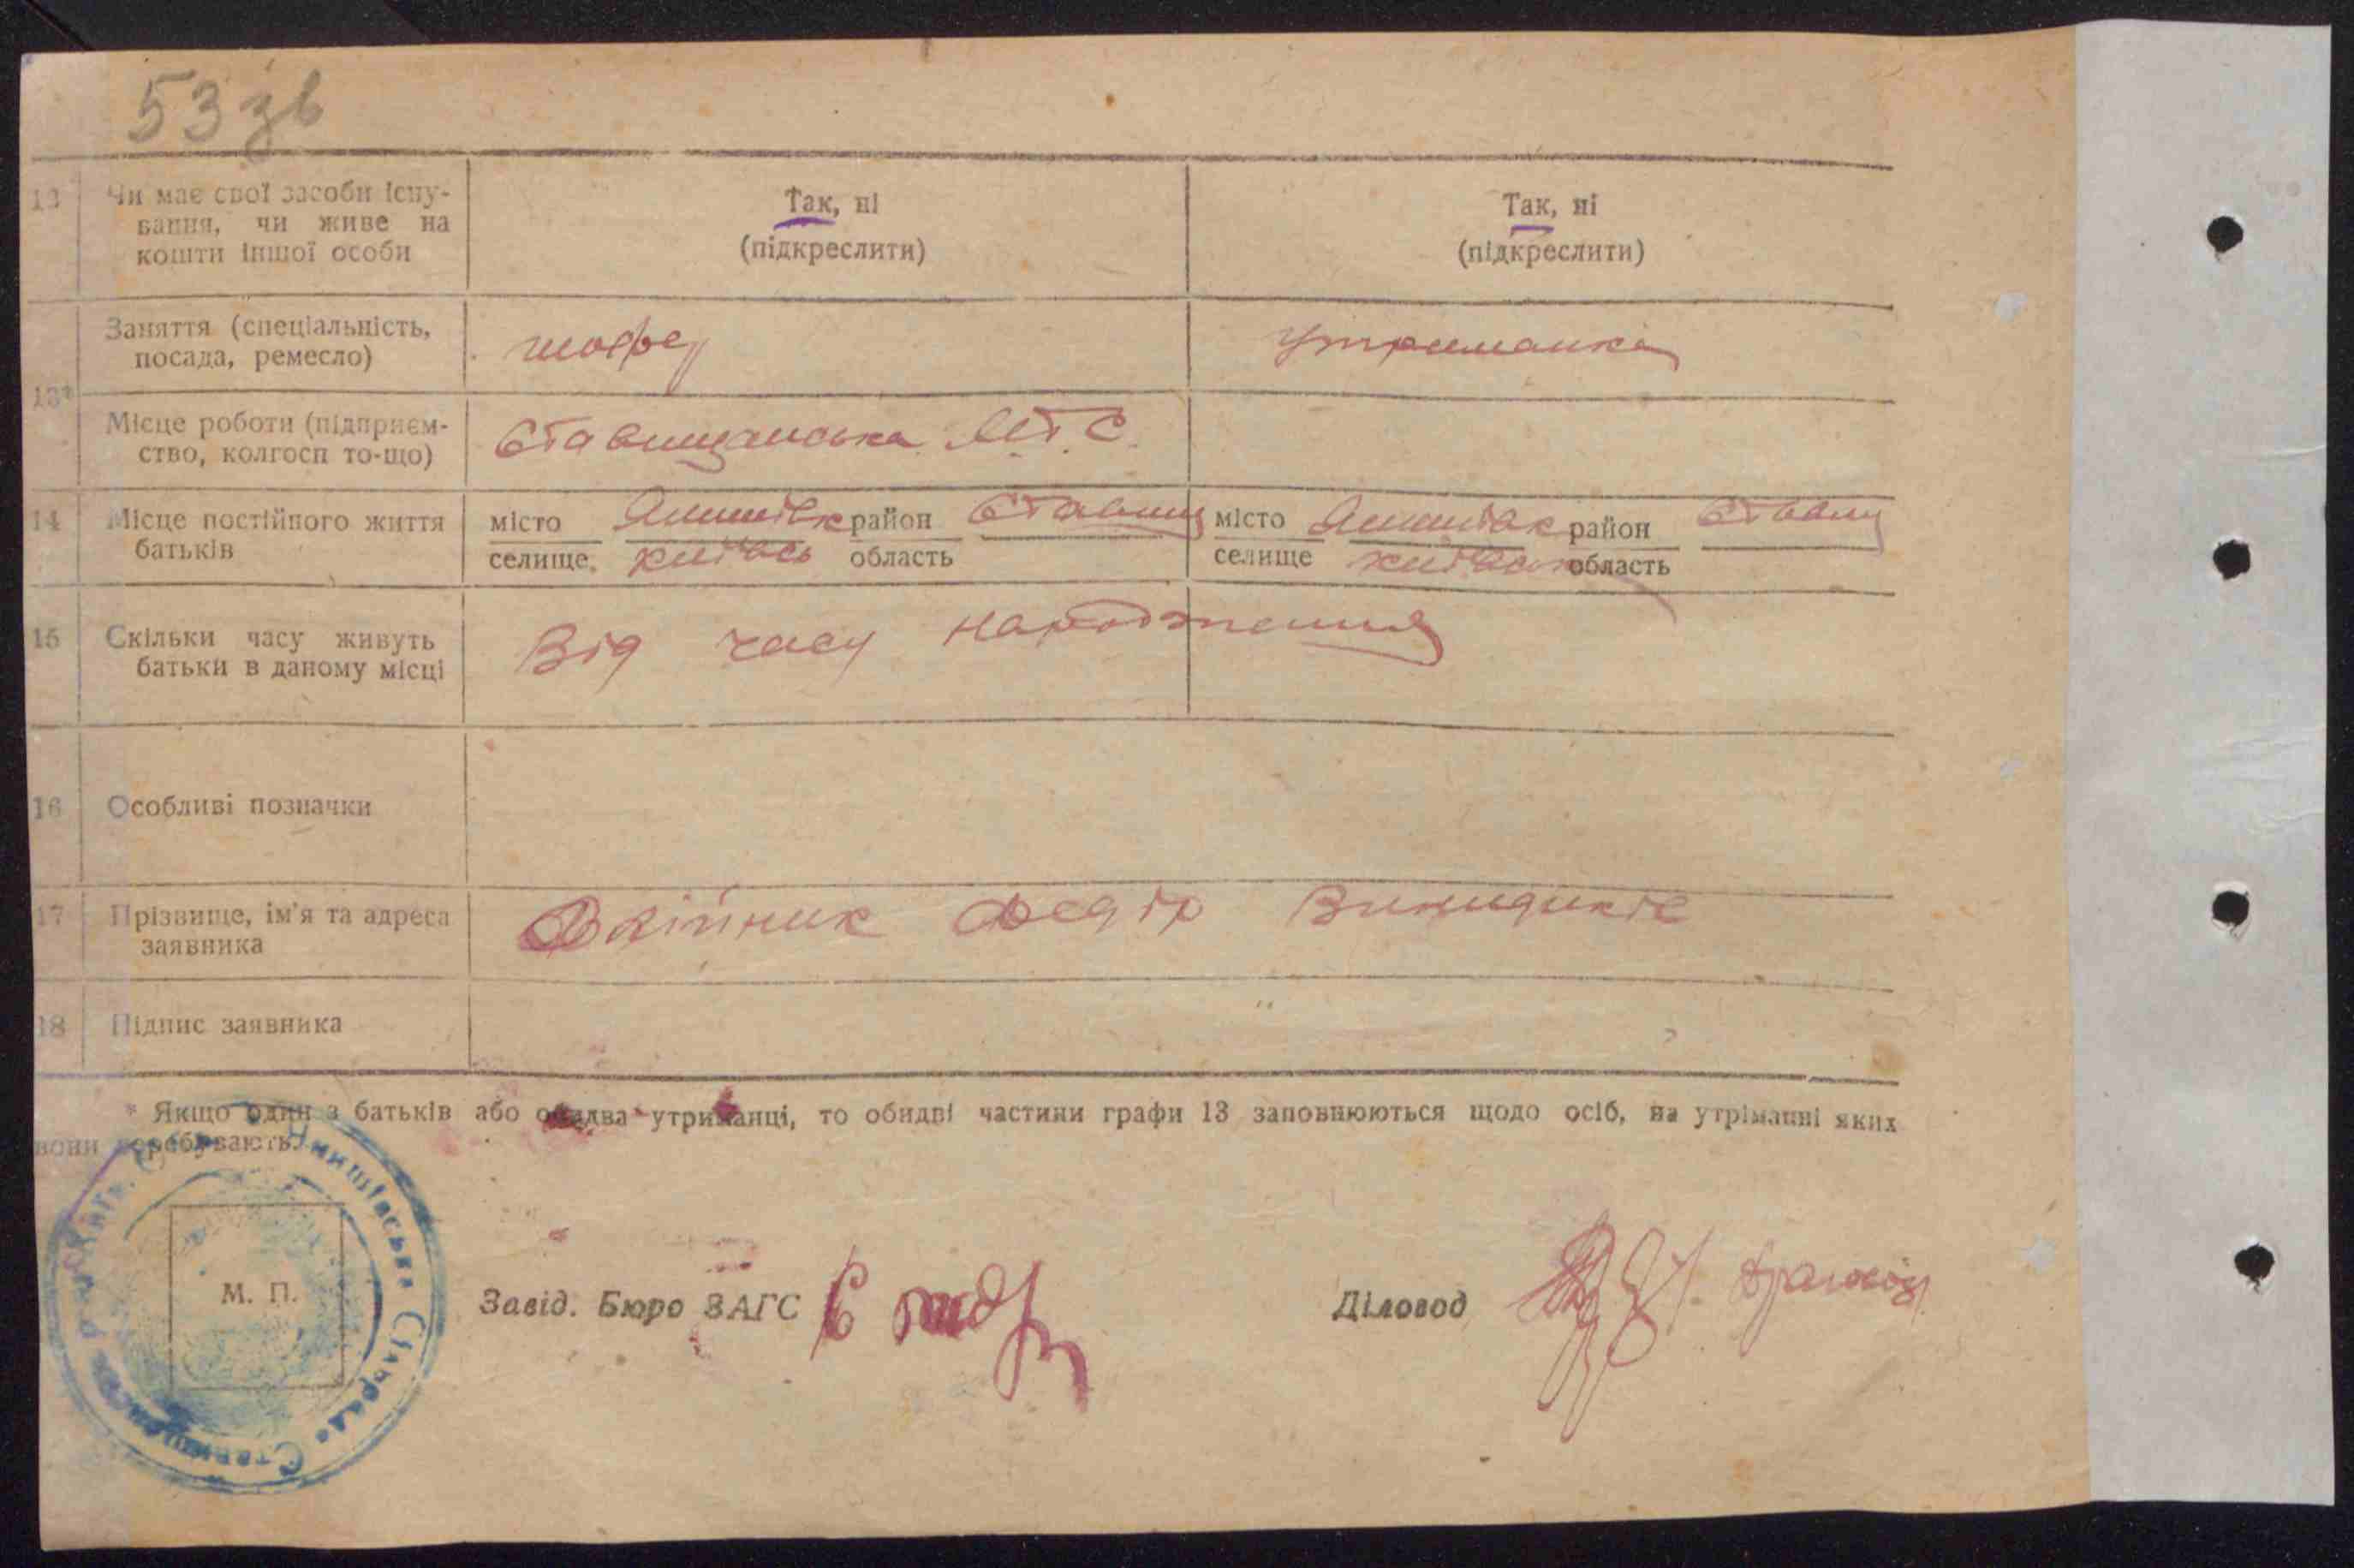 53 зв
12 Чи має свої засоби існу-
вання, чи живе на
кошти іншої особи
Так, ні
(підкреслити)
Так, ні
(підкреслити)
13*
Заняття (спеціальність,
посада, ремесло)
шофер
утриманка
Місце роботи (підприєм-
ство, колгосп то-що)
Ставищанська М.Т.С.
14 Місце постійного життя
батьків
місто район
селище, область
місто район
селище область
15 Скільки часу живуть
батьки в даному місці
Від часу народження
16 Особливі позначки
17 Прізвище, ім'я та адреса
заявника
Олійник Федір
18 Підпис заявника
* Якщо один з батьків або обидва утриманці, то обидві частини графи 13 заповнюються щодо осіб, на утріманні яких
вони перебувають.
Янишівська Сільрада
М. П.
Завід. Бюро ЗАГС
Діловод